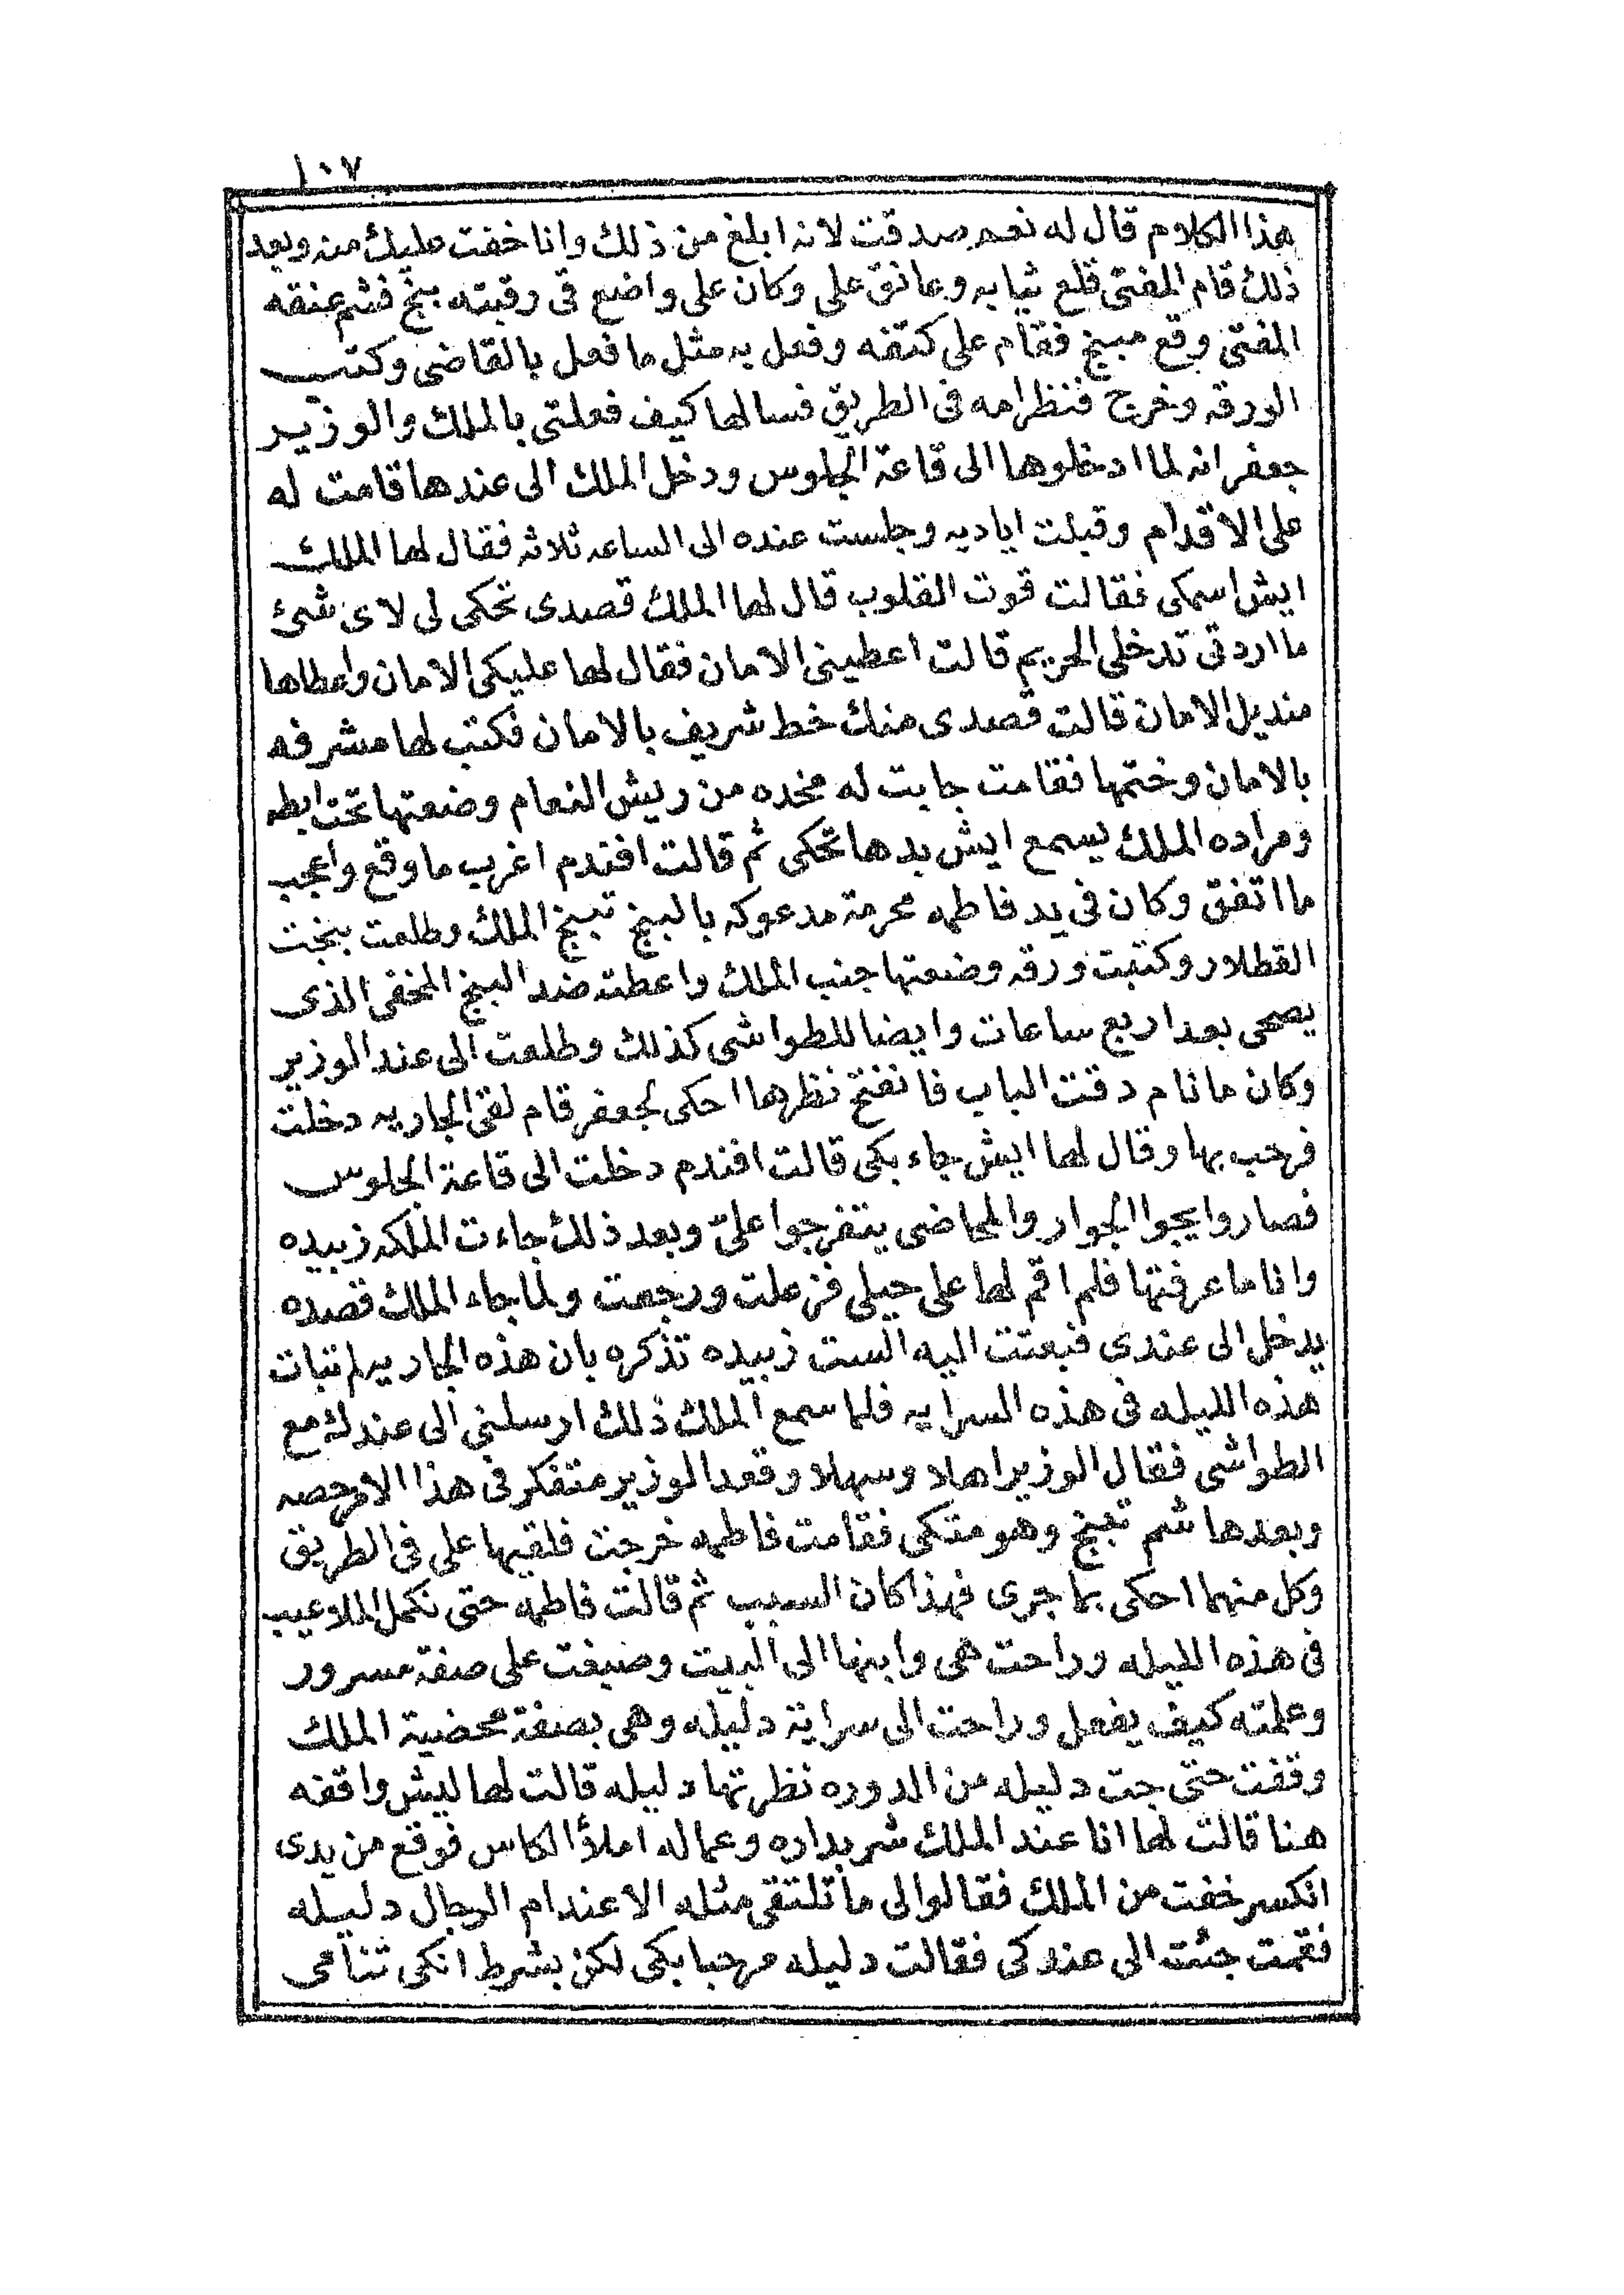 ١٠٧
هذا الكلام قال له نعم صدقت لانه ابلغ من ذلك وانا خفت عليك منه وبعد
ذلك قام المفتى قلع ثيابه وعانق على وكان على واضع فى رقبته بنج فشم عنقه
المفتى وقع مبنج فقام على كتفه وفعل به مثل ما فعل بالقاضى وكتب
الورقه وخرج فنظر امه فى الطريق فسالها كيف فعلتى بالملك والوزير
جعفر انه لما ادخلوها الى قاعة الجلوس ودخل الملك الى عندها قامت له
على الاقدام وقبلت اياديه وجلست عنده الى الساعه ثلاثه فقال لها الملك
ايش اسمكى فقالت قوت القلوب قال لها الملك قصدى تحكى لى لاى شئ
ما اردتى تدخلى الحريم قالت اعطينى الامان فقال لها عليكى الامان واعطاها
منديل الامان قالت قصدى منك خط شريف بالامان فكتب لها مشرفه
بالامان وختمها فقامت جابت له مخده من ريش النعام وضعتها تحت ابطه
ومراده الملك يسمع ايش بدها تحكى ثم قالت افندم اغرب ما وقع واعجب
ما اتفق وكان فى يد فاطمه محرمة مدعوكه بالبنج تبنج الملك وطلعت بنجت
القطلار وكتبت ورقه وضعتها جنب الملك واعطته ضد البنج المخفى الذى
يصحى بعد اربع ساعات وايضا للطواشى كذلك وطلعت الى عند الوزير
وكان ما نام دقت الباب فانفتح نظرها احكى لجعفر قام لقى الجاريه دخلت
فرحب بها وقال لها ايش جاء بكى قالت افندم دخلت الى قاعة الجلوس
فصاروا يجوا الجوار والمحاضى يتفرجوا علىّ وبعد ذلك جاءت الملكه زبيده
وانا ما عرفتها فلم اقم لها على حيلى فزعلت ورجعت ولما جاء الملك قصده
يدخل الى عندى فبعتت اليه الست زبيده تذكره بان هذه الجاريه لم تبات
هذه الليله فى هذه السرايه فلما سمع الملك ذلك ارسلنى الى عندك مع
الطواشى فقال الوزير اهلا وسهلا وقعد الوزير متفكر فى هذا الامر حصه
وبعدها شم تبنج وهو متكى فقامت فاطمه خرجت فلقيها على فى الطريق
وكل منهما احكى بما جرى فهذا كان السبب ثم قالت فاطمه حتى نكمل الملاعيب
فى هذه الليله وراحت هى وابنها الى البيت وصبغت على صفة مسرور
وعلمته كيف يفعل وراحت الى سراية دليله وهى بصفة محضية الملك
وقفت حتى جت دليله من الدوره نظرتها دليله قالت لها ليش واقفه
هنا قالت لها انا عند الملك شربداره وعماله املؤ الكاس فوقع من يدى
انكسر خفت من الملك فقالوا لى ما تلتقى مثله الا عند ام الرجال دليله
فقمت جئت الى عندكى فقالت دليله مرحبا بكى لكن بشرط انكى تنامى